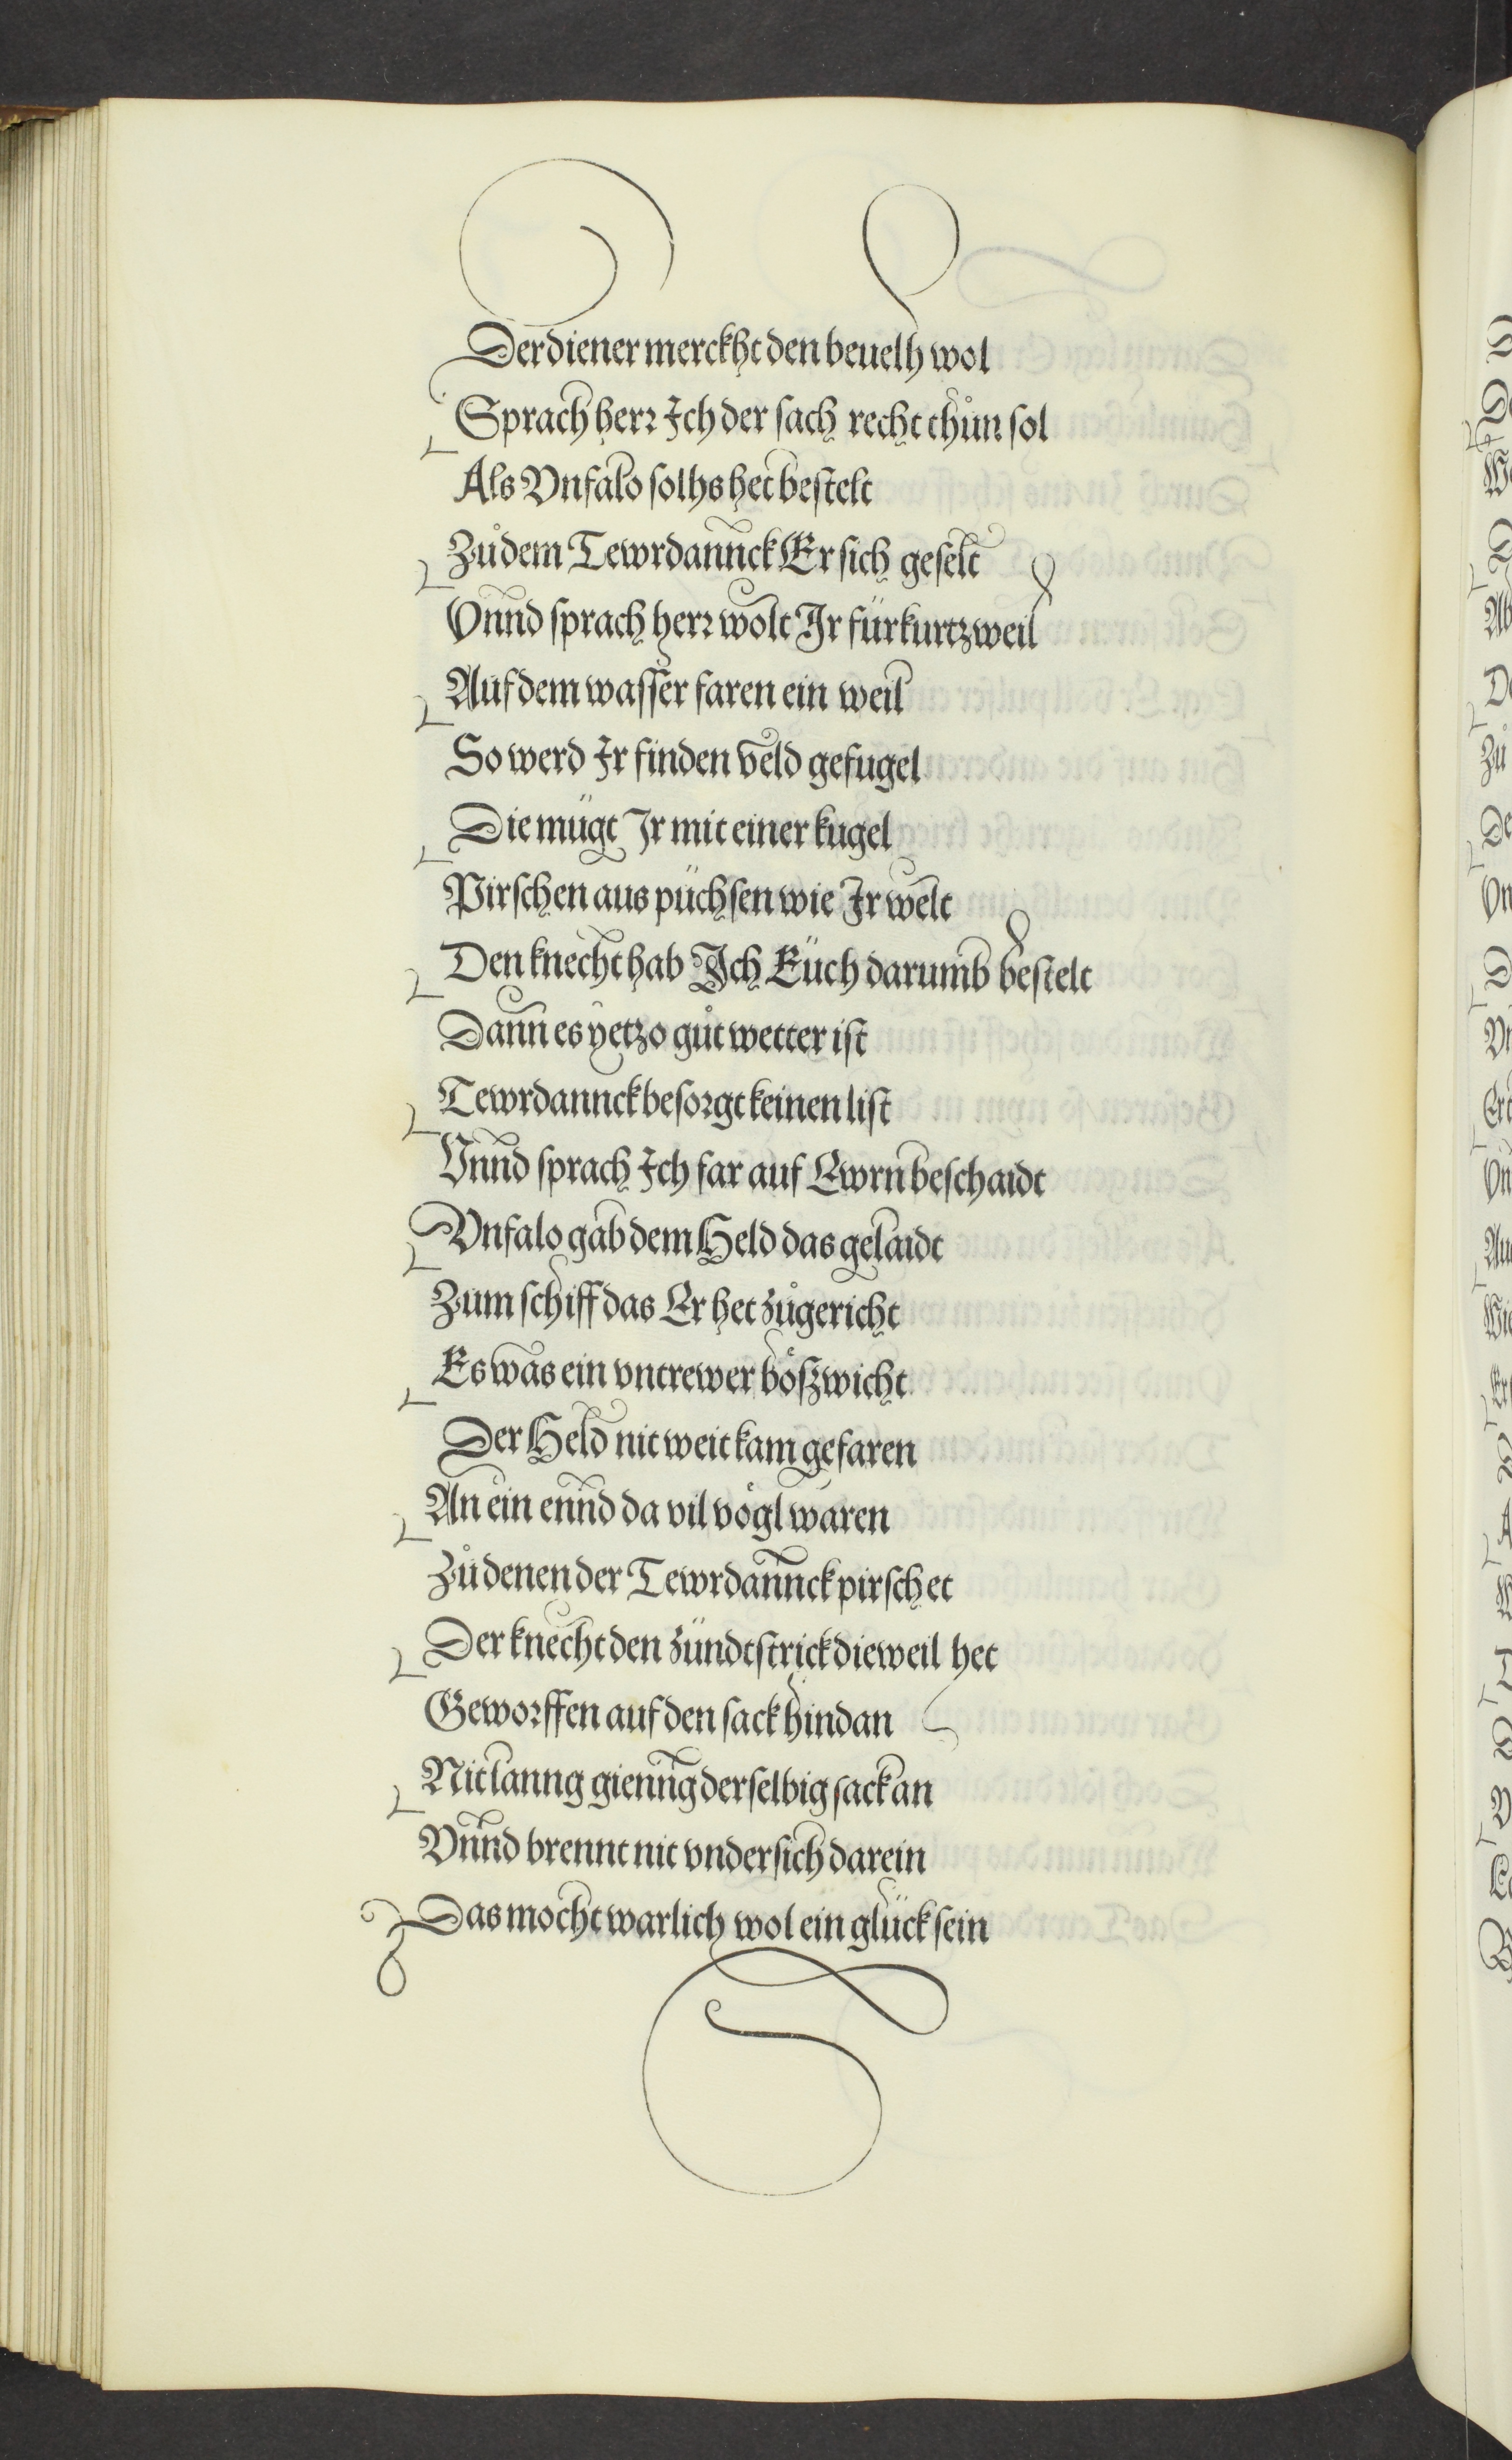 Der diener merckht den beuelh wol
Sprach herr Ich der sach recht thůn sol
Als Vnfalo solhs het bestelt
Zůdem Tewrdannck Er sich geselt
Vnnd sprach herr wolt Ir für kurtzweil
Auf dem wasser faren ein weil
So werd Ir finden veld gefugel
Die mügt Ir mit einer kugel
Pirschen aus püchsen wie Ir welt
Den knecht hab Ich Euch darumb bestelt
Dann es yetzo gůt wetter ist
Tewrdannck besorgt keinen list
Vnnd sprach Ich far auf Ewrn beschaidt
Vnfalo gab dem Held das gelaidt
Zum schiff das Er het zůgericht
Es was ein vntrewer bößwicht
Der Held nit weit kam gefaren
An ein ennd da vil vögl waren
Zů denen der Tewrdannck pirschet
Der knecht den zündtstrick dieweil het
Geworffen auf den sack hindan
Nit lanng gienng derselbig sack an
Vnnd brennt nit vndersich darein
Das mocht warlich wol ein glück sein